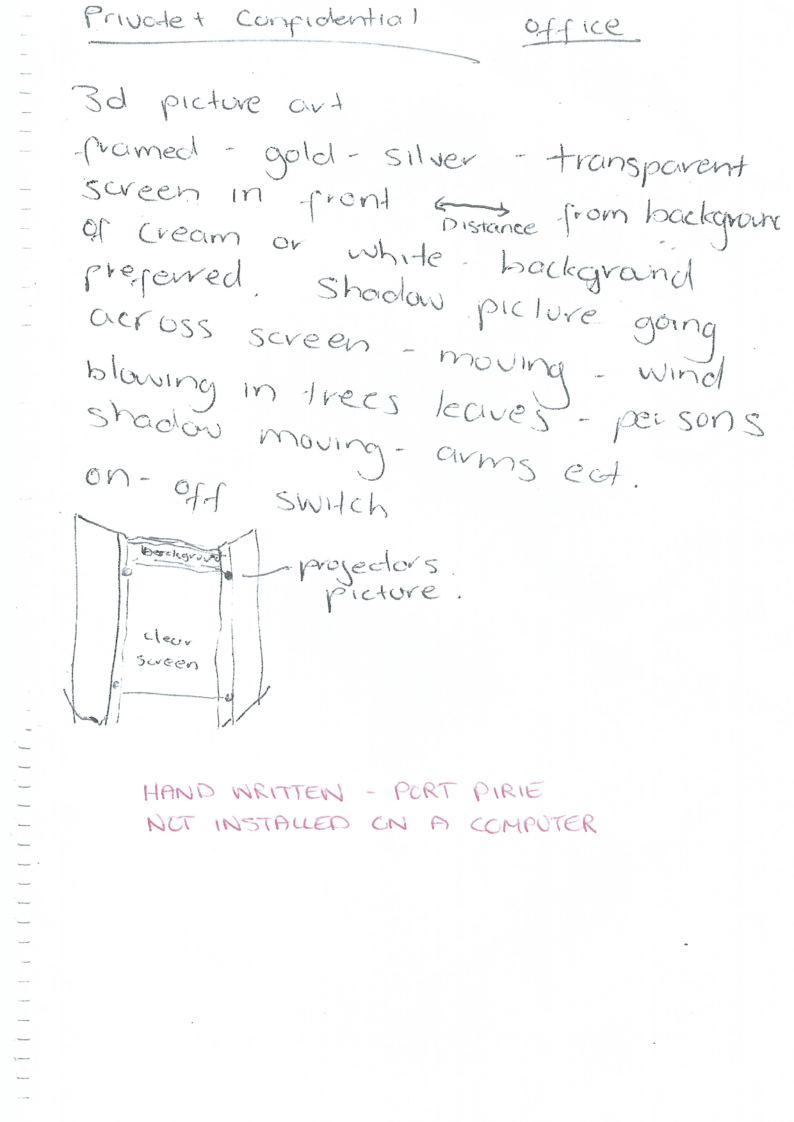 Private + Confidential
office
3d picture art
framed - gold - silver - transparent
screen in front ⟷ Distance from background
of cream or white - background
preferred. Shadow picture going
across screen - moving - wind
blowing in trees leaves - persons
shadow moving - arms ect.
on - off switch
background
projectors
picture.
clear
screen
HAND WRITTEN - PORT PIRIE
NOT INSTALLED ON A COMPUTER